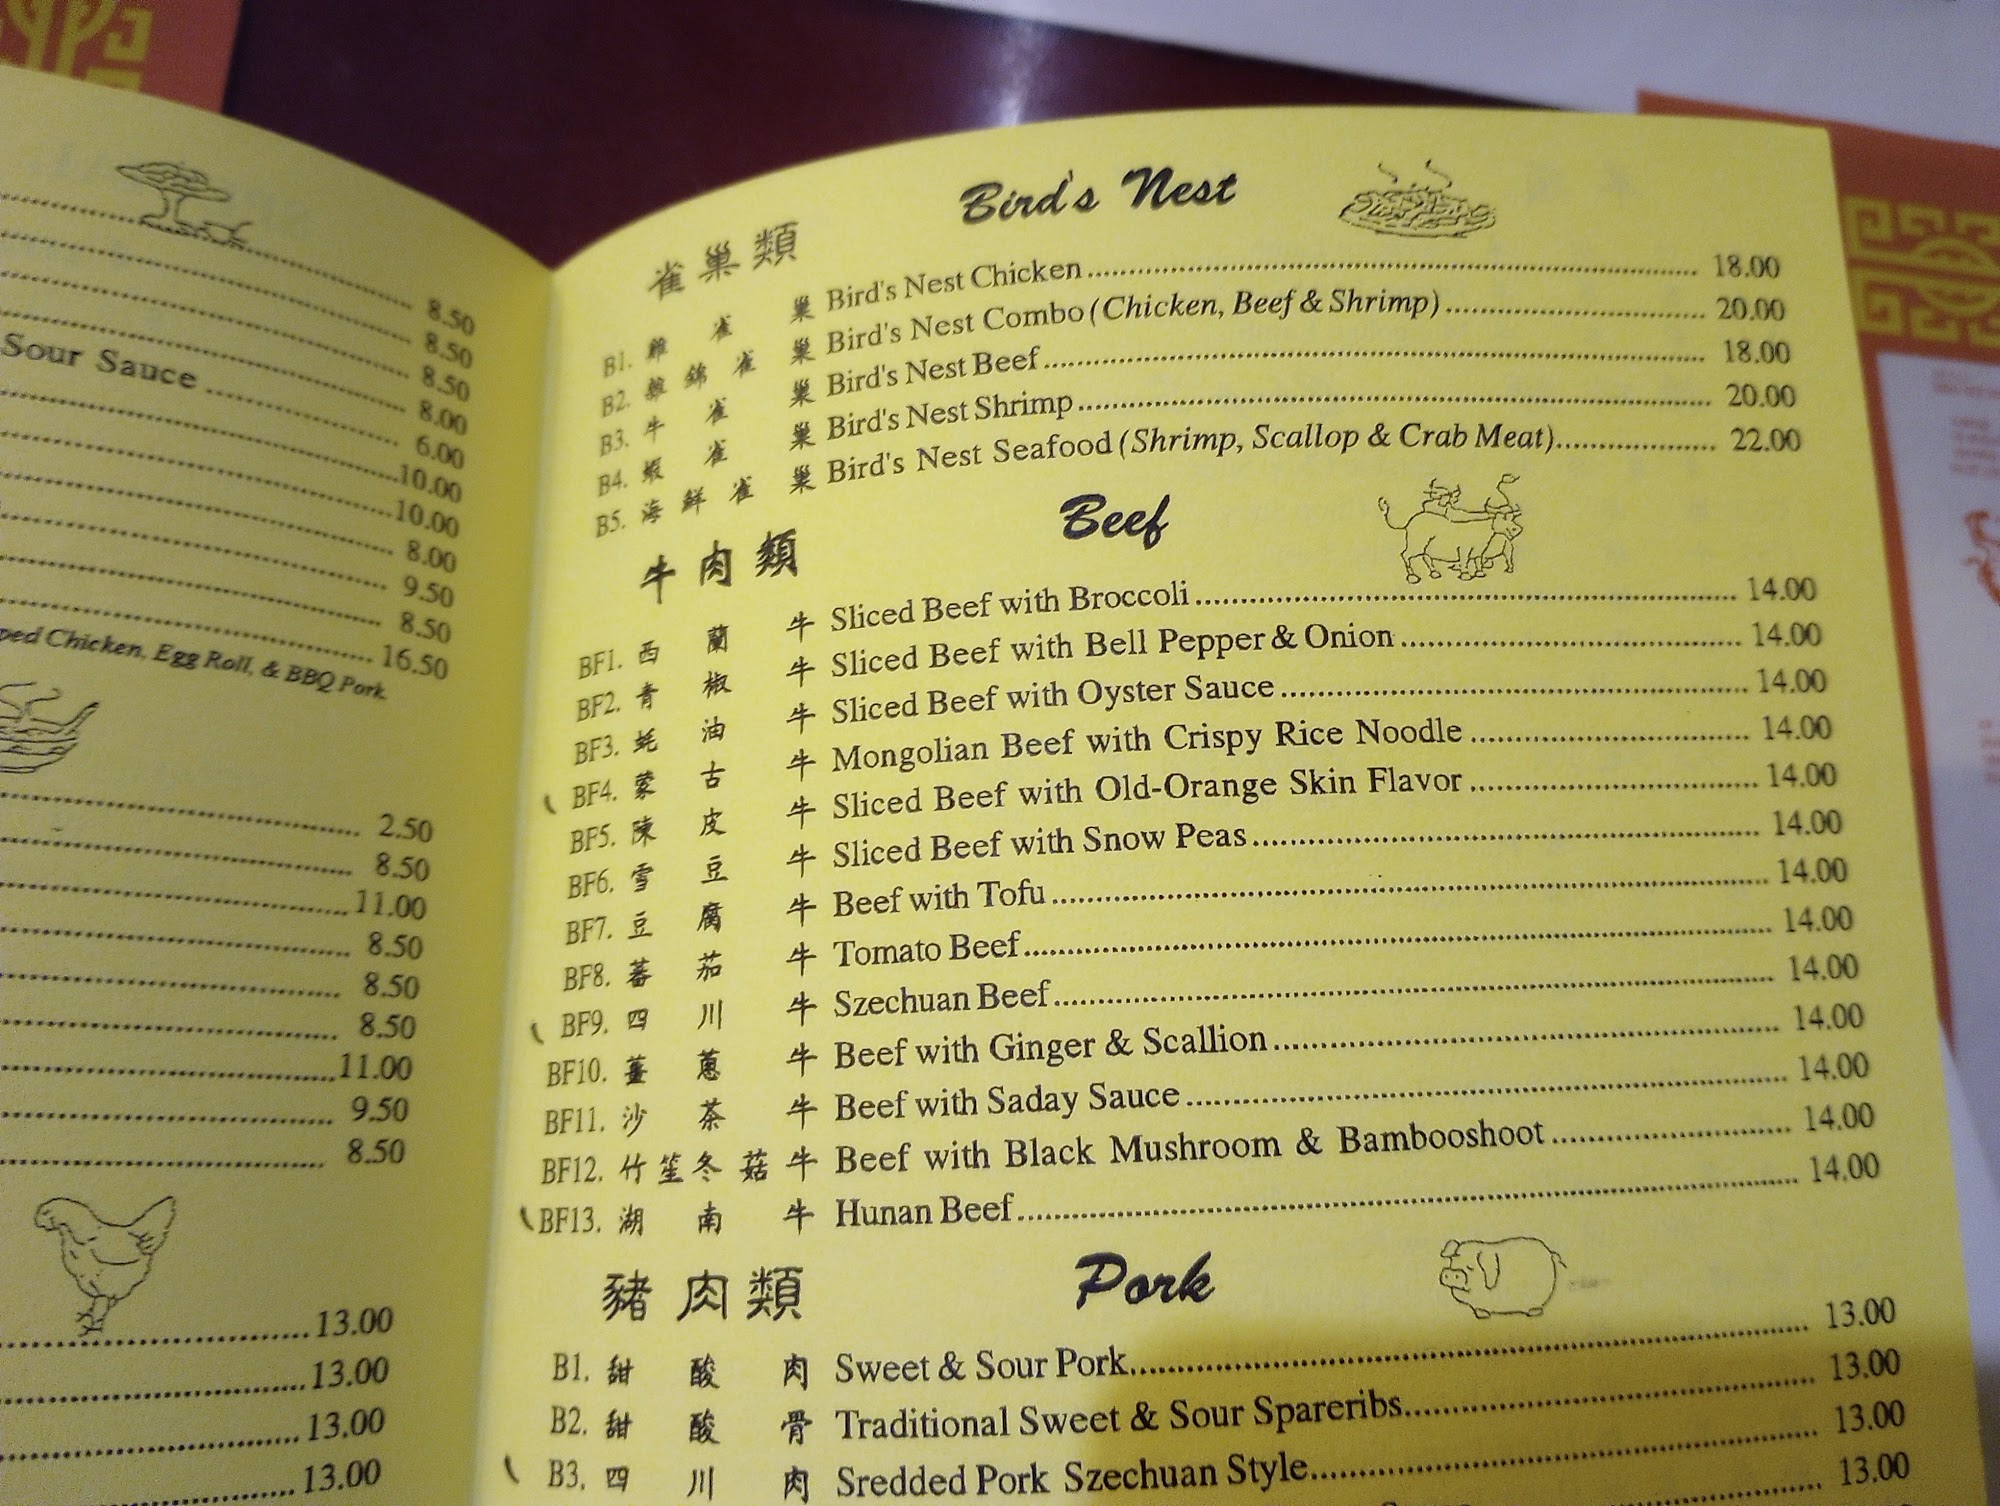 8.50
8.50
8.50
Sour Sauce 8.00
6.00
10.00
10.00
8.00
9.50
8.50
16.50
ped Chicken, Egg Roll, & BBQ Pork
2.50
8.50
11.00
8.50
8.50
8.50
11.00
9.50
8.50
13.00
13.00
13.00
13.00
雀巢類 Bird's Nest
B1. 雞雀巢 Bird's Nest Chicken 18.00
B2. 雜錦雀巢 Bird's Nest Combo (Chicken, Beef & Shrimp) 20.00
B3. 牛雀巢 Bird's Nest Beef 18.00
B4. 蝦雀巢 Bird's Nest Shrimp 20.00
B5. 海鮮雀巢 Bird's Nest Seafood (Shrimp, Scallop & Crab Meat) 22.00
牛肉類 Beef
BF1. 西蘭牛 Sliced Beef with Broccoli 14.00
BF2. 青椒牛 Sliced Beef with Bell Pepper & Onion 14.00
BF3. 蚝油牛 Sliced Beef with Oyster Sauce 14.00
BF4. 蒙古牛 Mongolian Beef with Crispy Rice Noodle 14.00
BF5. 陳皮牛 Sliced Beef with Old-Orange Skin Flavor 14.00
BF6. 雪豆牛 Sliced Beef with Snow Peas 14.00
BF7. 豆腐牛 Beef with Tofu 14.00
BF8. 蕃茄牛 Tomato Beef 14.00
BF9. 四川牛 Szechuan Beef 14.00
BF10. 薑蔥牛 Beef with Ginger & Scallion 14.00
BF11. 沙茶牛 Beef with Saday Sauce 14.00
BF12. 竹笙冬菇牛 Beef with Black Mushroom & Bambooshoot 14.00
BF13. 湖南牛 Hunan Beef 14.00
豬肉類 Pork
B1. 甜酸肉 Sweet & Sour Pork 13.00
B2. 甜酸骨 Traditional Sweet & Sour Spareribs 13.00
B3. 四川肉 Sredded Pork Szechuan Style 13.00
13.00